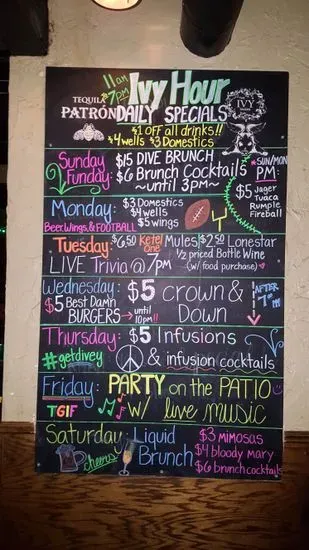 11am
→7pm
Ivy Hour
TEQUILA
PATRÓN
DAILY SPECIALS
IVY
$1 OFF all drinks!!
$4 wells $3 Domestics
Sunday Funday:
$15 DIVE BRUNCH
$6 Brunch Cocktails
~until 3pm~
*SUN/MON
PM:
$5 Jager
Tuaca
Rumple
Fireball
Monday:
Beer, Wings, & FOOTBALL
$3 Domestics
$4 wells
$5 wings
Tuesday:
$6.50 Ketel One Mules
$2.50 Lonestar
LIVE Trivia @ 7PM
1/2 priced Bottle Wine
(w/ food purchase)
Wednesday:
$5 Best Damn
BURGERS → until 10pm!!
$5 crown & Down
AFTER
7pm
Thursday:
#getdivey
$5 Infusions
& infusion cocktails
Friday:
TGIF
PARTY on the PATIO
w/ live music
Saturday:
cheers
Liquid
Brunch
$3 mimosas
$4 bloody mary
$6 brunch cocktails